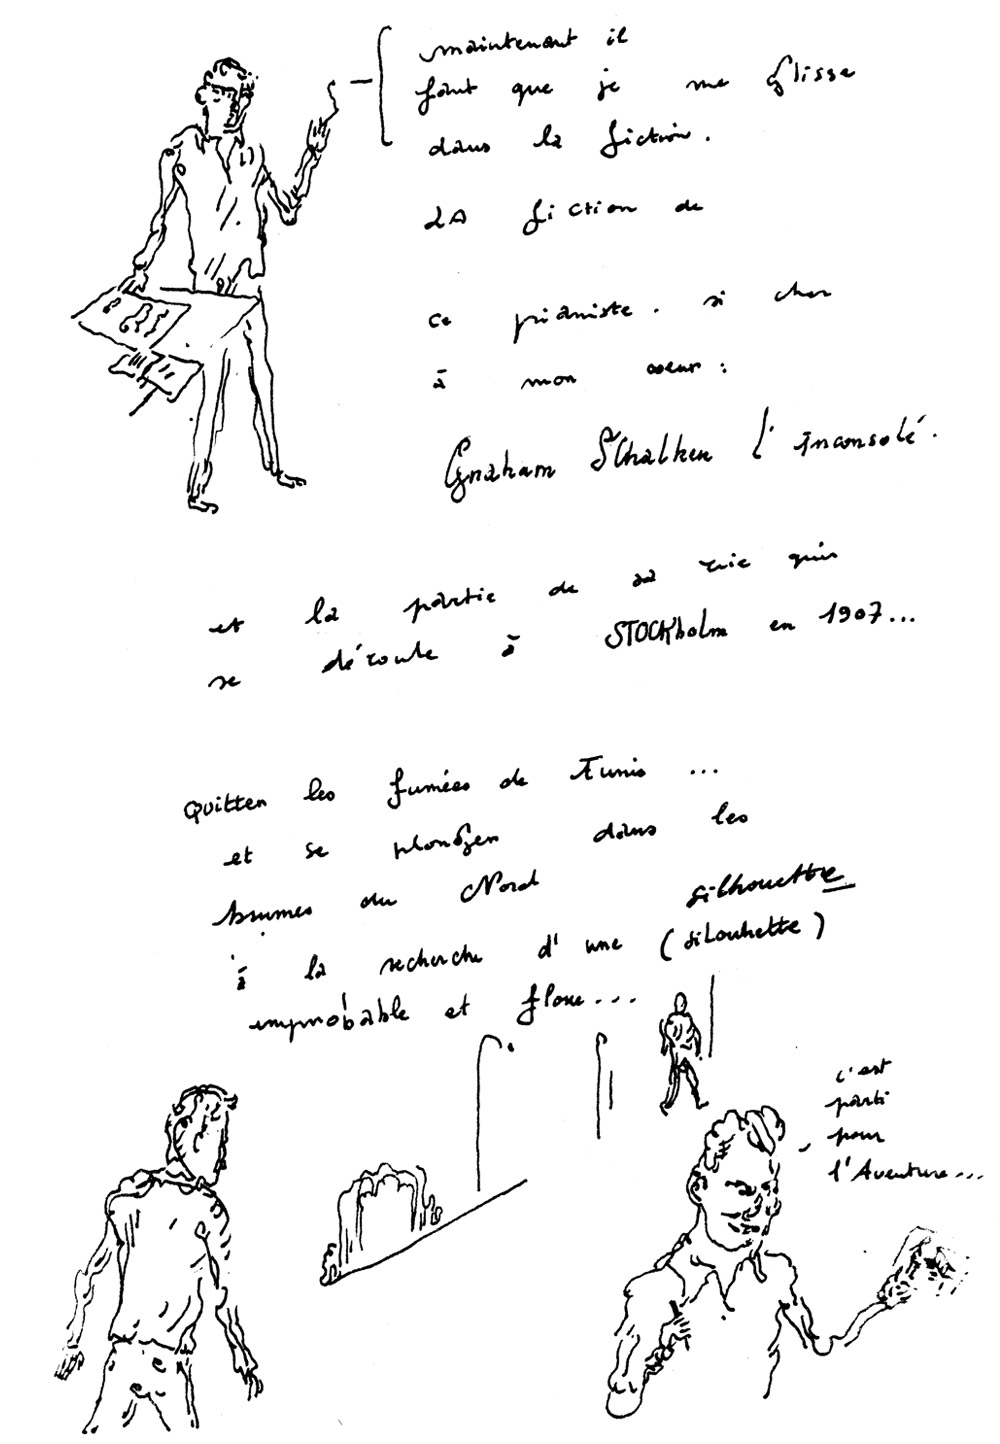 maintenant il
faut que je me glisse
dans la fiction.
LA fiction de
ce pianiste. si cher
à mon coeur :
Graham SChalken l'Inconsolé.
et la partie de sa vie qui
se déroule à STOCKholm en 1907...
Quitter les fumées de Tunis ...
et se plonger dans les
brumes du Nord
silhouette
à la recherche d'une (silouhette)
improbable et floue...
c'est
parti
pour
l'Aventure...